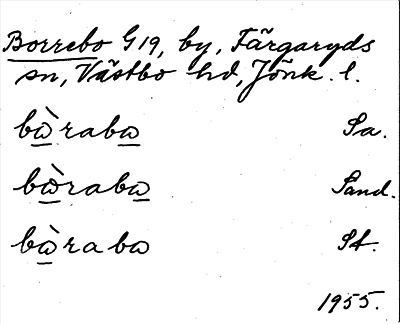 Borrebo G19, by, Färgaryds
sn, Västbo hd, Jönk. l.
bὼ̲rabω̲ Sa.
bὼ̲rabω̲ Sand.
bὼ̲rabω St.
1955.